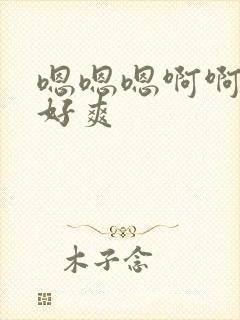 嗯嗯嗯啊啊
好爽
木子念